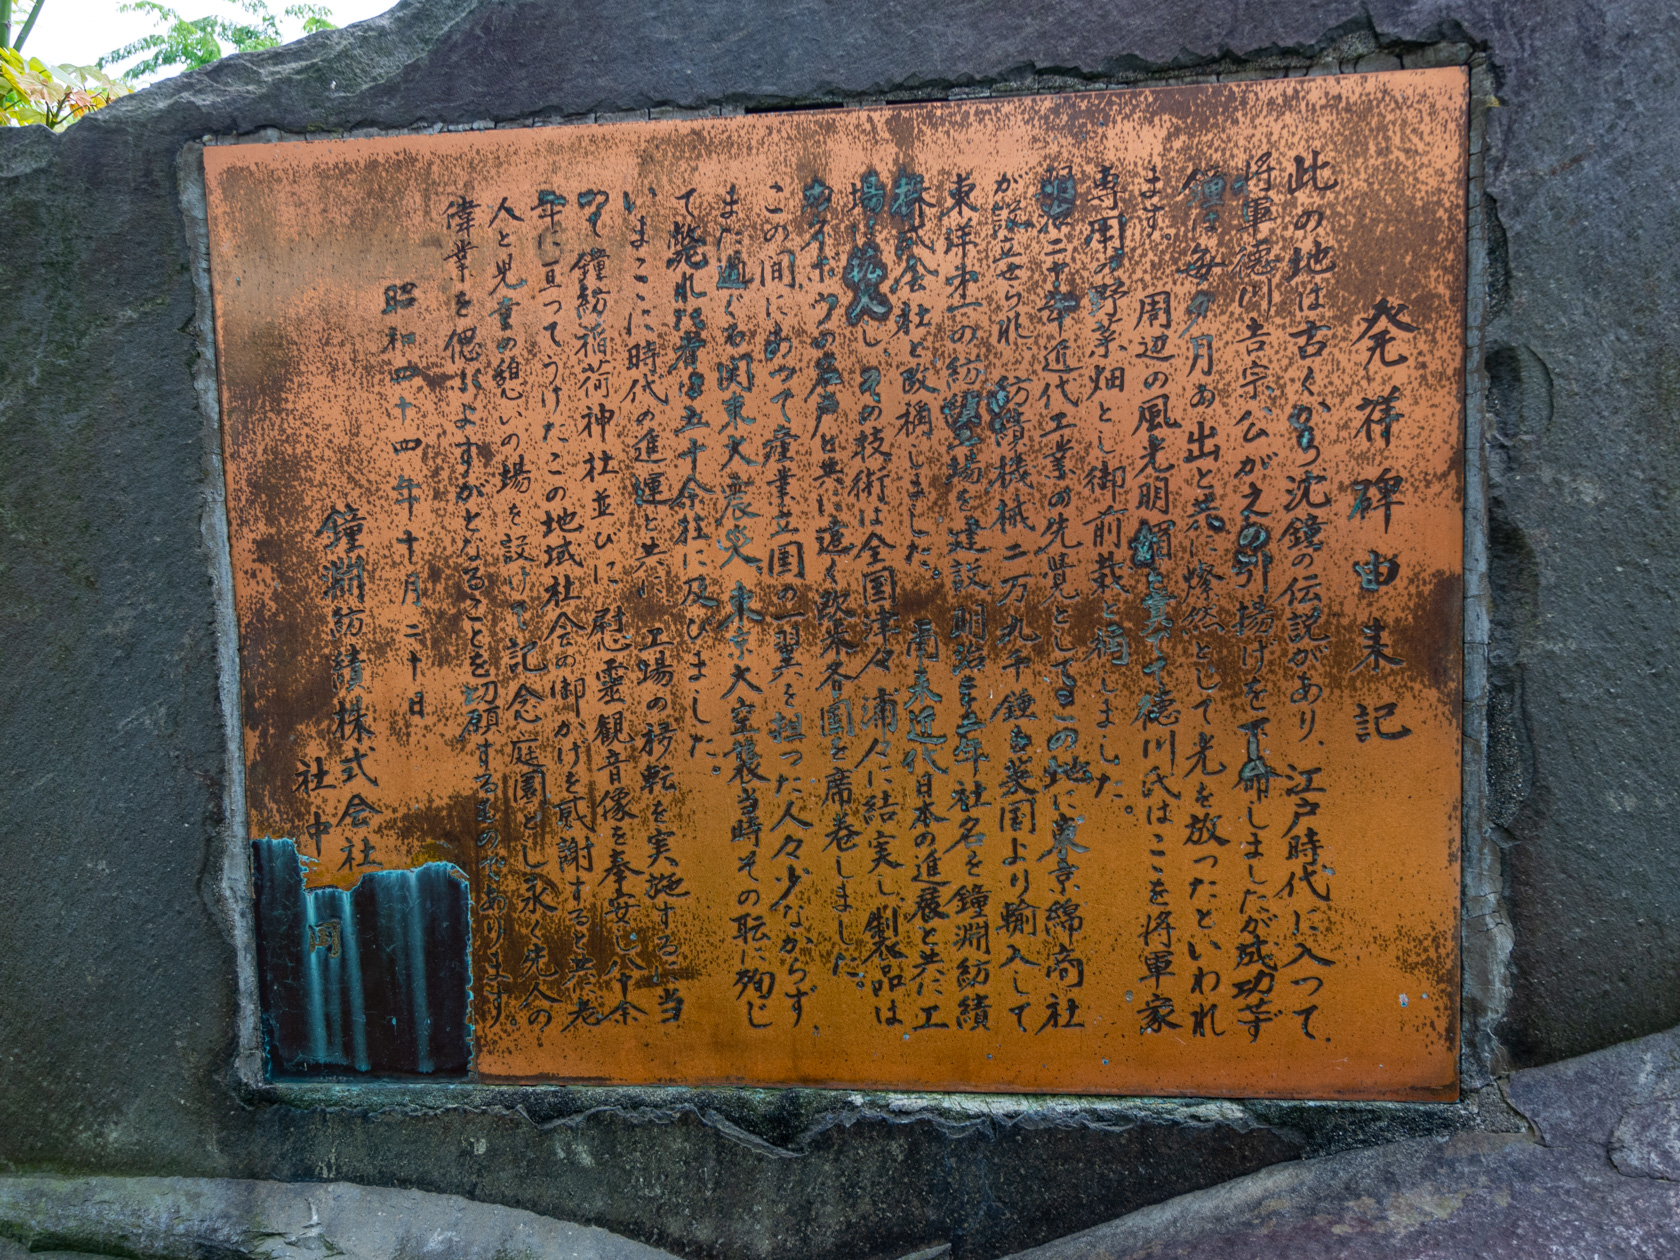 発祥碑由来記
此の地は古くから沈鐘の伝説があり、江戸時代に入つて、
将軍徳川吉宗公が之の引揚げを下命しましたが成功せず
鐘は毎夕月の出と共に燦然として光を放つたといわれ
ます。周辺の風光明媚を愛でて徳川氏はここを将軍家
専用の野菜畑とし御前栽と称しました。
明治二十年近代工業の先覚としてこの地に東京綿商社
が設立せられ、紡績機械二万九千錘を英国より輸入して
東洋第一の紡績工場を建設明治 年社名を鐘淵紡績
株式会社と改稱しました。爾来近代日本の進展と共に工
場は拡大し、その技術は全国津々浦々に結実し製品は
カネボウの名声と共に遠く欧米各国を席巻しました。
この間にあつて産業立国の一翼を担つた人々少なからず
また過ぐる関東大震災、東京大空襲当時その職に殉じ
て斃れた者は五十余柱に及びました。
いまここに時代の進運と共に工場の移転を実施する。当
つて鐘紡稲荷神社並びに慰霊観音像を奉安し八十余
年に亘つてうけたこの地域社会の御かげを感謝すると共に老
人と児童の憩いの場を設けて記念庭園とし永く先人の
偉業を偲ぶよすがとなることを切願するものであります。
昭和四十四年十月二十日
鐘淵紡績株式会社
社中一同